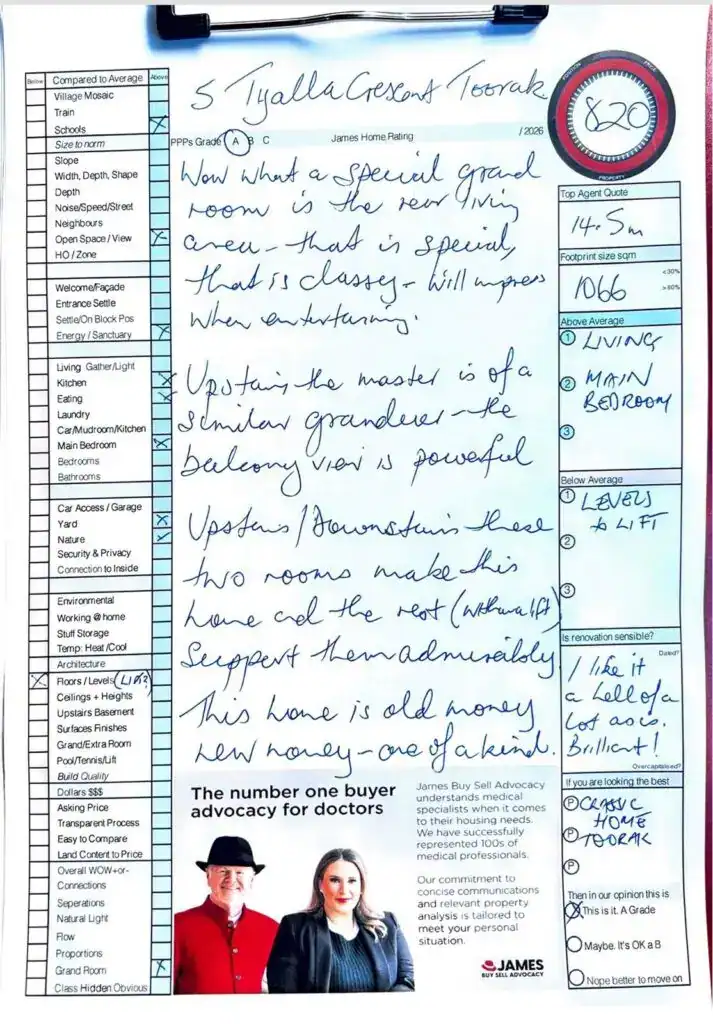 5 Tyalla Crescent Toorak
POSITION
PRICE
820
PROPERTY
Below
Compared to Average
Above
Village Mosaic
Train
Schools
Size to norm
Slope
Width, Depth, Shape
Depth
Noise/Speed/Street
Neighbours
Open Space / View
HO / Zone
Welcome/Façade
Entrance Settle
Settle/On Block Pos
Energy / Sanctuary
Living Gather/Light
Kitchen
Eating
Laundry
Car/Mudroom/Kitchen
Main Bedroom
Bedrooms
Bathrooms
Car Access / Garage
Yard
Nature
Security & Privacy
Connection to Inside
Environmental
Working @ home
Stuff Storage
Temp: Heat /Cool
Architecture
Floors / Levels (Lift?)
Ceilings + Heights
Upstairs Basement
Surfaces Finishes
Grand/Extra Room
Pool/Tennis/Lift
Build Quality
Dollars $$$
Asking Price
Transparent Process
Easy to Compare
Land Content to Price
Overall WOW+or-
Connections
Seperations
Natural Light
Flow
Proportions
Grand Room
Class Hidden Obvious
PPPs Grade A B C
James Home Rating
/ 2026
Wow what a special grand
room is the rear living
area - that is special,
that is classey - will impress
when entertaining.
Upstairs the master is of a
similar grandeur - the
balcony view is powerful
Upstairs / Downstairs these
two rooms make this
home and the rest (with a lift)
support them admirably
This home is old money
new money - one of a kind.
The number one buyer
advocacy for doctors
James Buy Sell Advocacy
understands medical
specialists when it comes
to their housing needs.
We have successfully
represented 100s of
medical professionals.
Our commitment to
concise communications
and relevant property
analysis is tailored to
meet your personal
situation.
JAMES
BUY SELL ADVOCACY
Top Agent Quote
14.5m
Footprint size sqm
<30%
1066
>80%
Above Average
1 LIVING
2 MAIN
BEDROOM
3
Below Average
1 LEVELS
& LIFT
2
3
Is renovation sensible?
Dated?
I like it
a hell of a
lot as is.
Brilliant!
Overcapitalised?
If you are looking the best
P CLASSIC
HOME
P TOORAK
P
Then in our opinion this is
This is it. A Grade
Maybe. It's OK a B
Nope better to move on